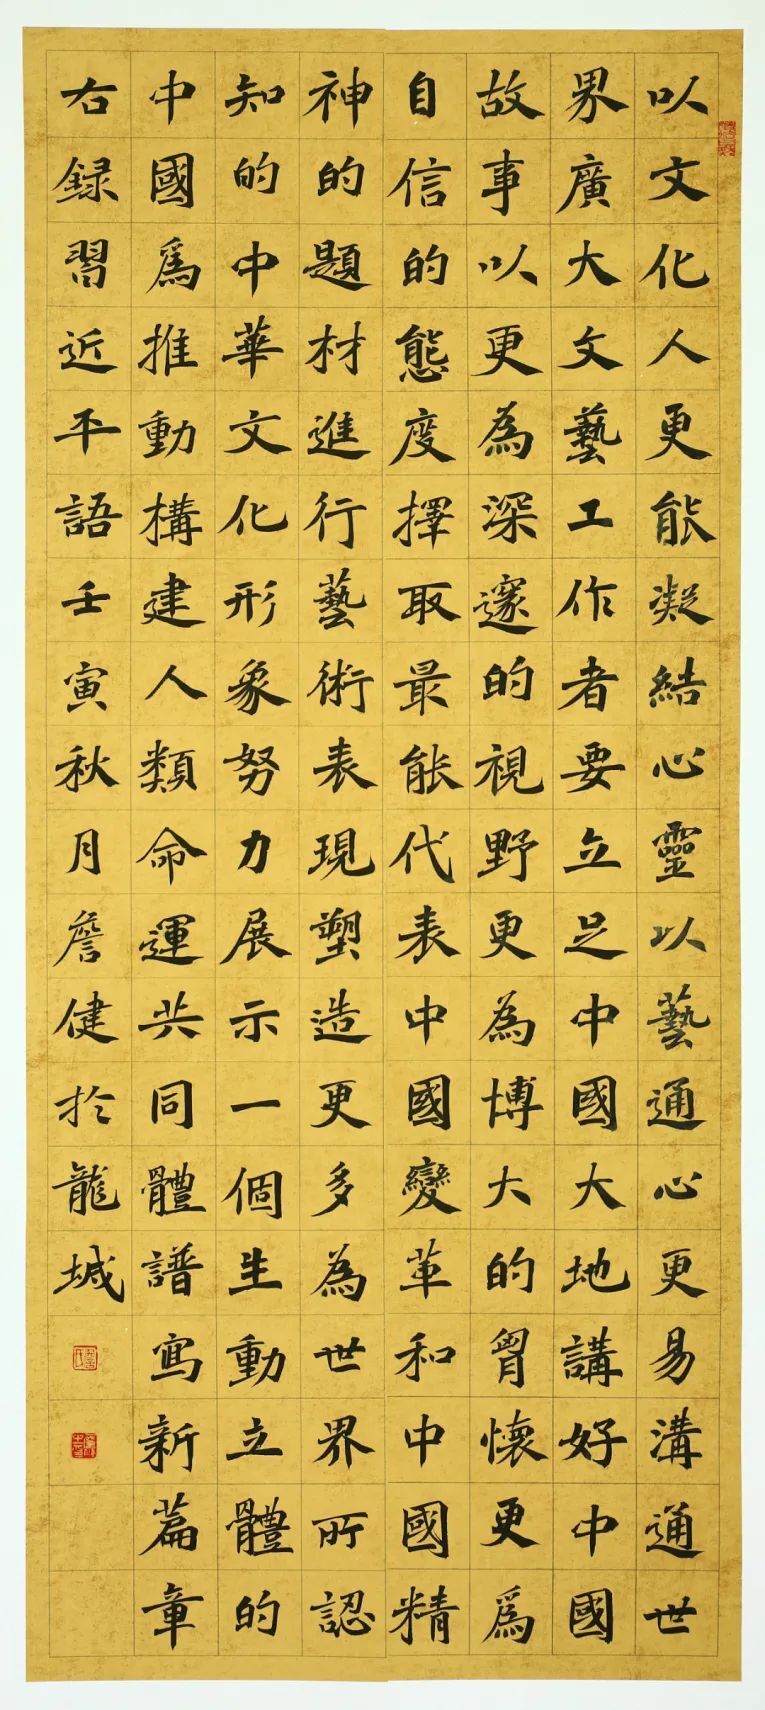 以文化人更能凝結心靈以藝通心更易溝通世
界廣大文藝工作者要立足中國大地講好中國
故事以更為深邃的視野更為博大的胷懷更爲
自信的態度擇取最能代表中國變革和中國精
神的題材進行藝術表現塑造更多為世界所認
知的中華文化形象努力展示一個生動立體的
中國爲推動構建人類命運共同體譜寫新篇章
右録習近平語壬寅秋月詹健於龍城